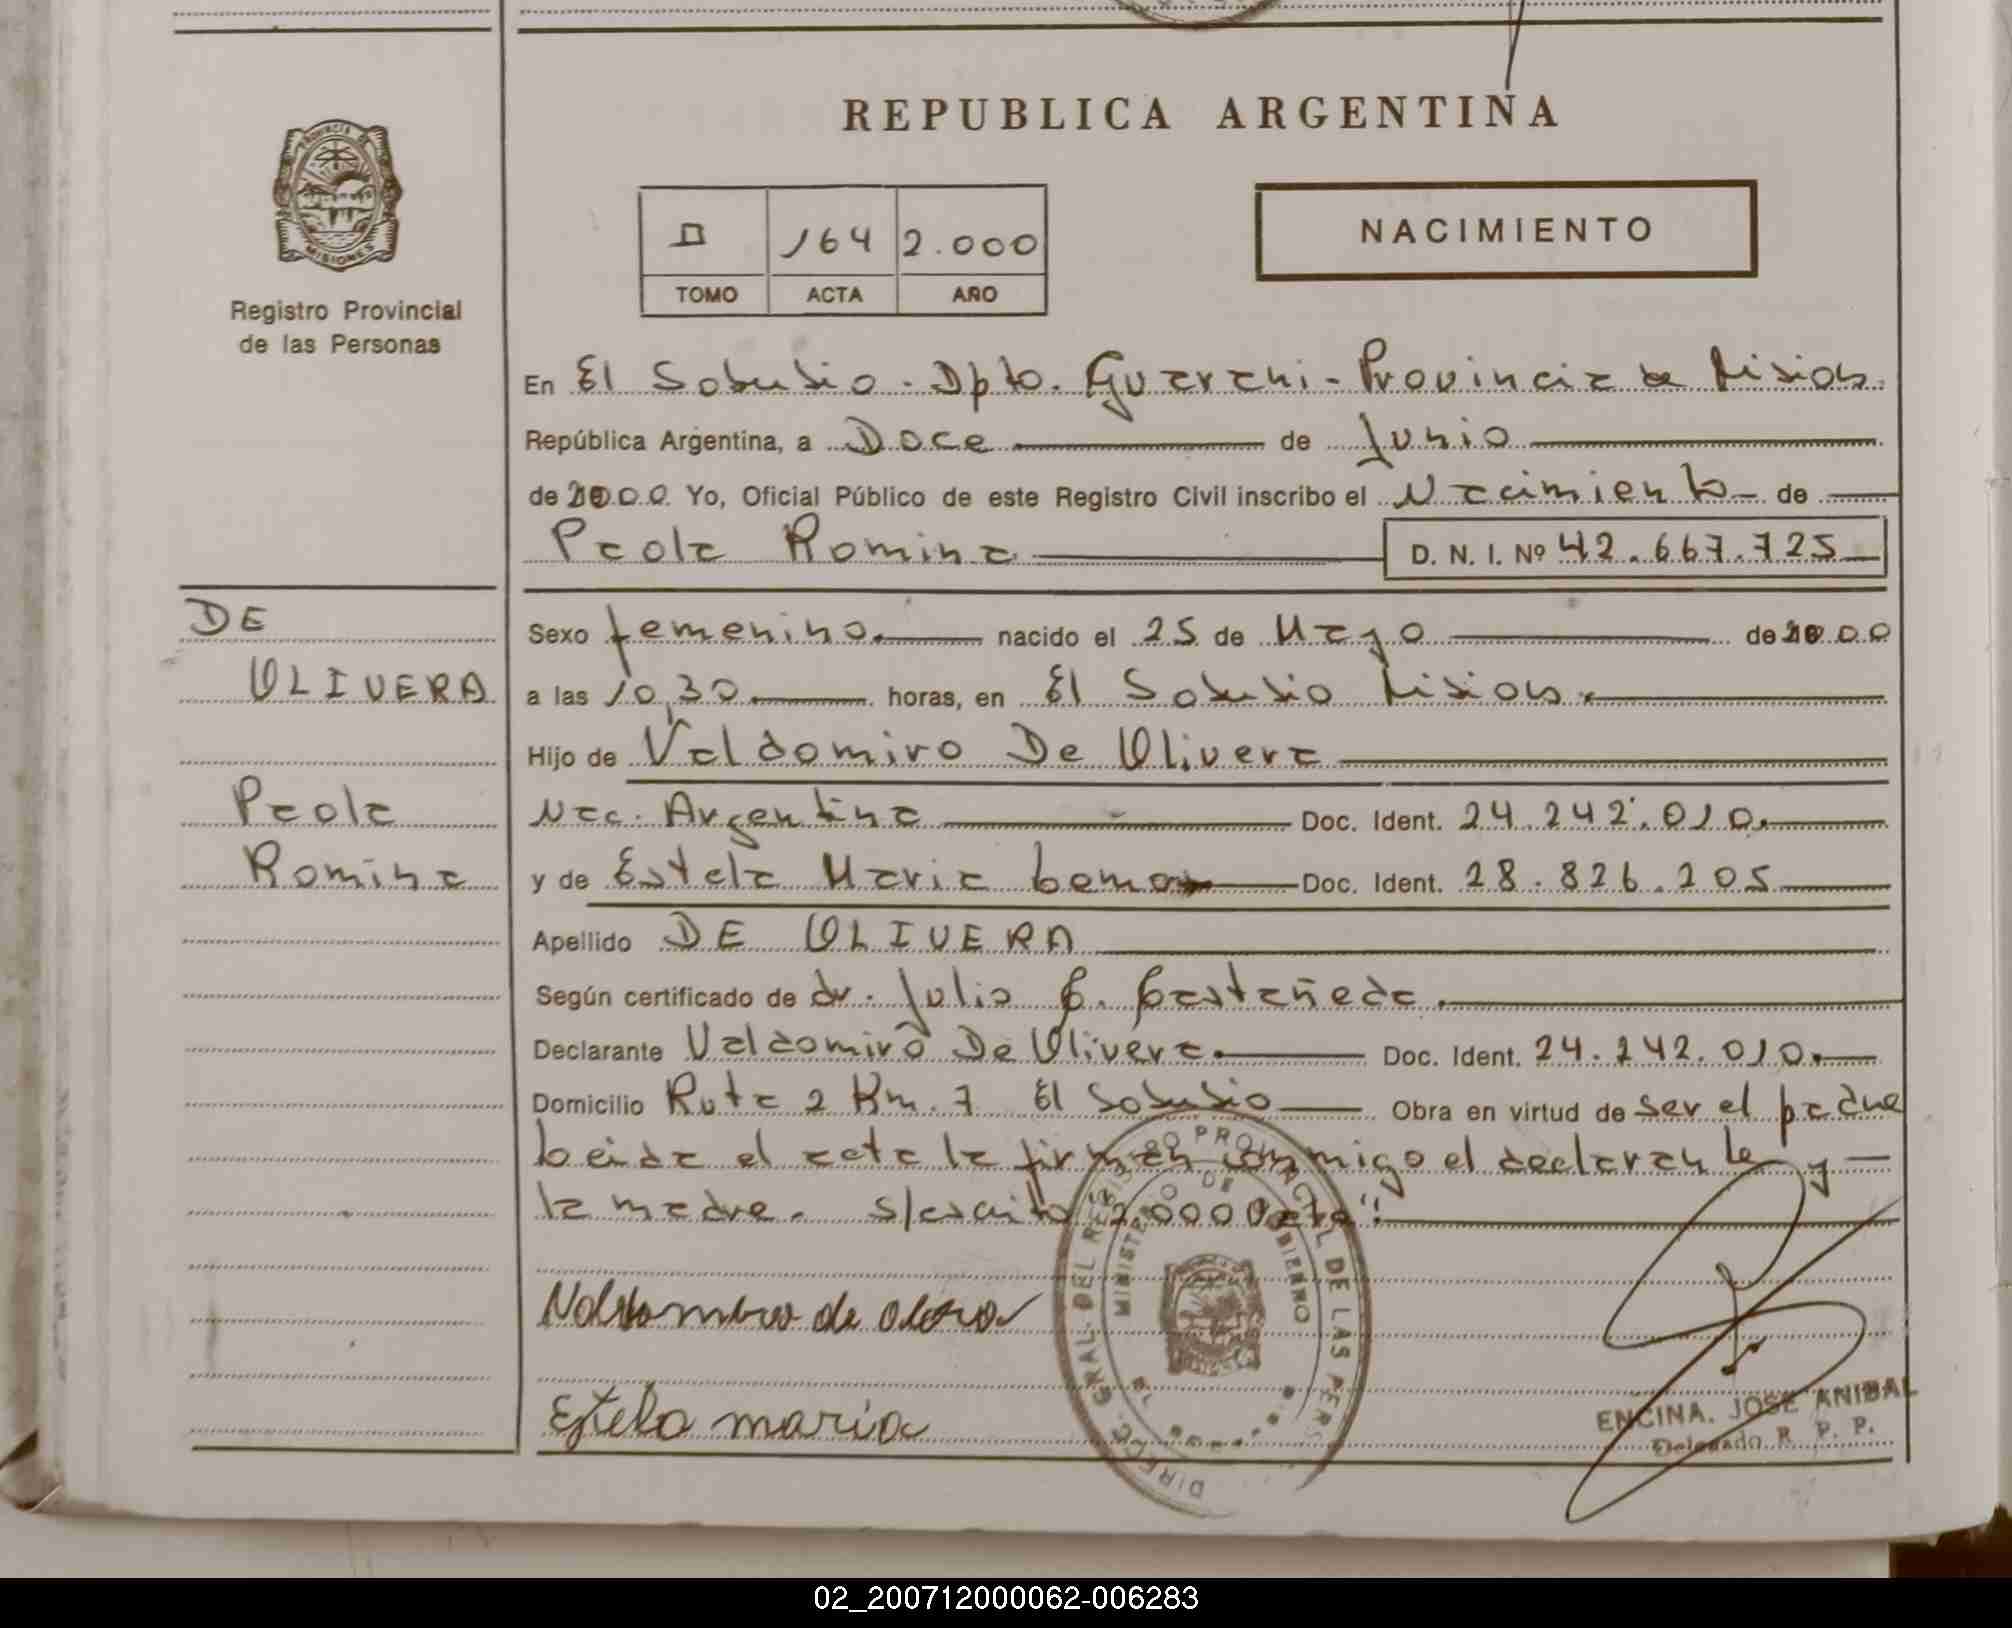 REPUBLICA ARGENTINA
PROVINCIA DE
MISIONES
Registro Provincial
de las Personas
II 164 2.000
TOMO ACTA AÑO
NACIMIENTO
En El Soberbio - Dpto. Guarani - Provincia de Misiones
República Argentina, a Doce de Junio
de 2000 Yo, Oficial Público de este Registro Civil inscribo el Nacimiento de
Paola Romina D. N. I. Nº 42.667.725
DE
OLIVERA
Paola
Romina
Sexo femenino. nacido el 25 de Mayo de 2000
a las 10,30 horas, en El Soberbio Misiones.
Hijo de Valdomiro De Olivera
Nac. Argentina Doc. Ident. 24.242.010.
y de Estela Maria Doc. Ident. 28.826.205
Apellido DE OLIVERA
Según certificado de dr. Julio C. Castañeda.
Declarante Valdomiro De Olivera. Doc. Ident. 24.242.010.
Domicilio Ruta 2 Km. 7 El Soberbio Obra en virtud de ser el padre
Leida el acta la firman conmigo el declarante y
la madre. s/escrito "2.000
Estela maria
DIREC. GRAL. DEL REGISTRO PROVINCIAL DE LAS PERS
MINISTERIO DE GOBIERNO
ENCINA. JOSE ANIBAL
Delegado R. P. P.
02_200712000062-006283